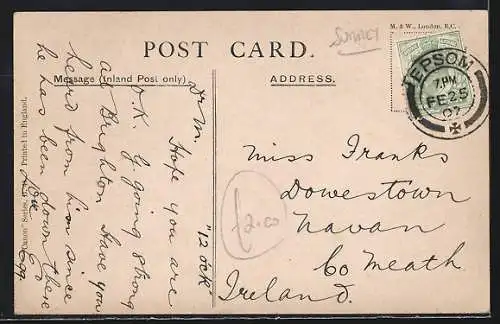 M. & W., London, E.C.
SURREY
POST CARD.
Message (Inland Post only)
ADDRESS.
EPSOM
7.PM
FE 25
07
"12 ock"
Dr M.
Hope you are
O.K. G. going strong
at Brighton Have you
heard from him since
he has been down there
Printed in England.
Miss Franks
Dowestown
Navan
Co Meath
Ireland.
£2.00